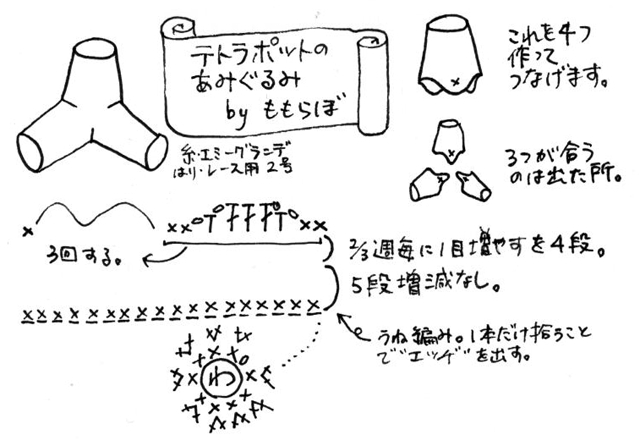 テトラポットの
あみぐるみ
by ももらぼ
糸・エミーグランデ
はり・レース用 2号
これを4つ
作って
つなげます。
3つが合う
のは出た所。
3回する。
2/3週毎に1目増やすを4段。
5段増減なし。
うね編み。1本だけ拾うこと
で"エッヂ"を出す。
わ